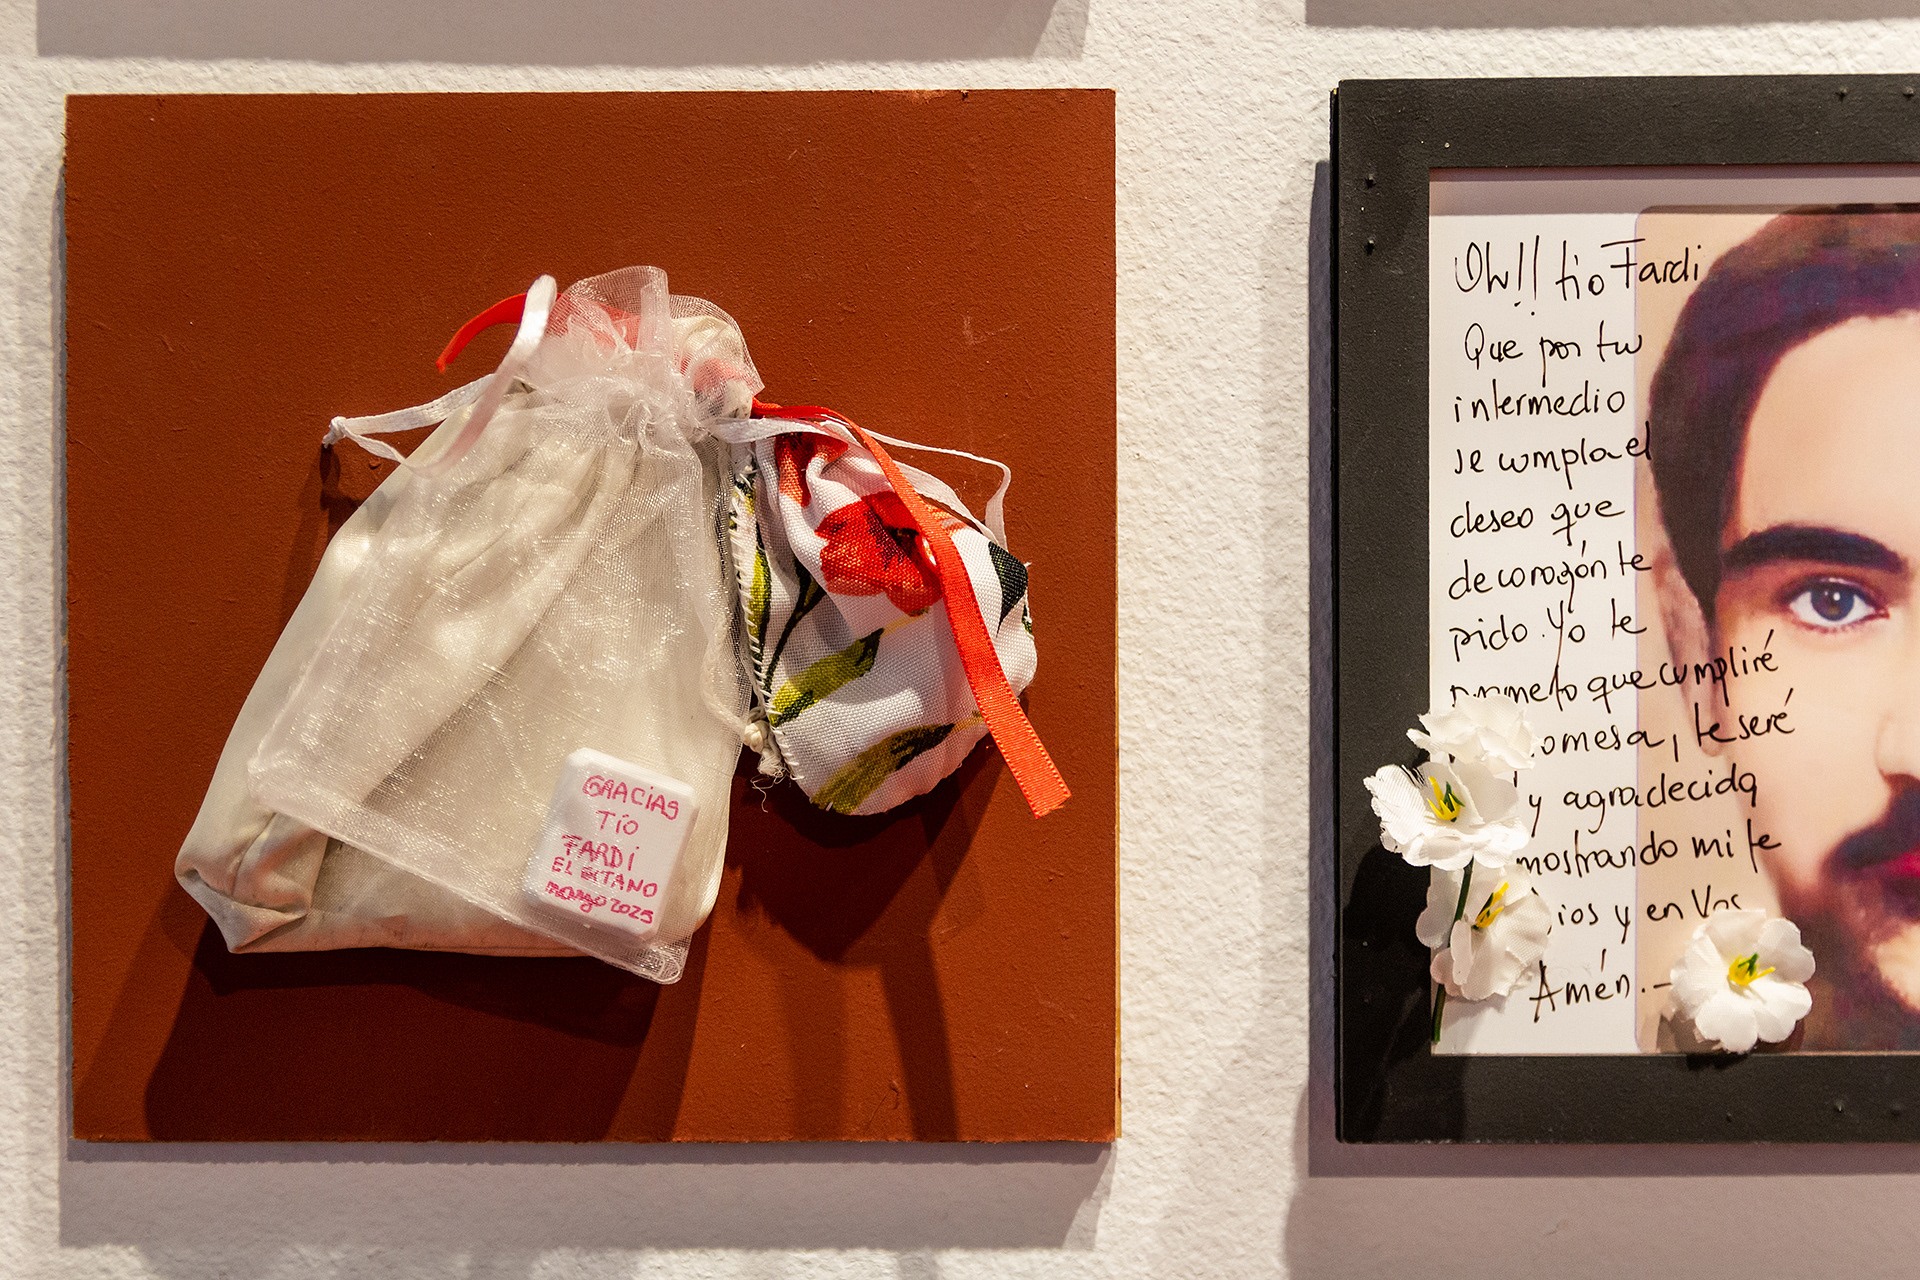 GRACIAS
TÍO
FARDÍ
EL GITANO
marzo 2025
Oh!! tio Fardi
Que por tu
intermedio
se cumpla el
deseo que
de corazón te
pido. Yo te
prometo que cumpliré
omesa, te seré
y agradecida
mostrando mi fe
ios y en Vos
Amén.-